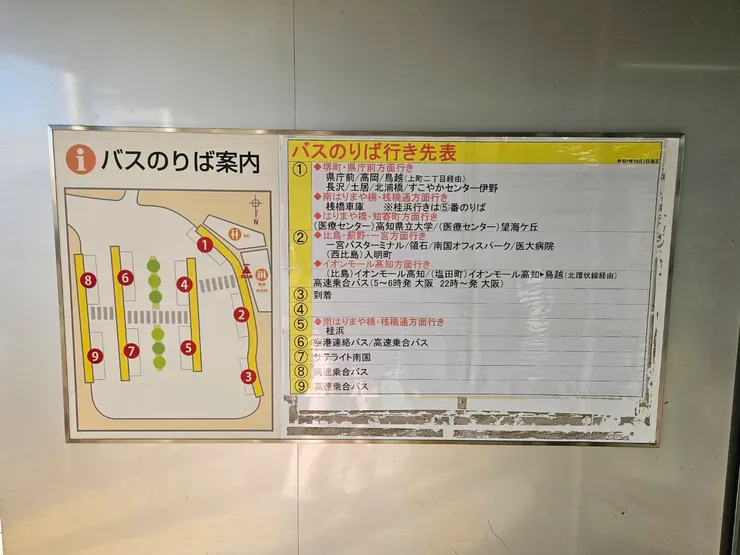 i バスのりば案内
N
WC
1
2
3
4
5
6
7
8
9
バスのりば行き先表
① ◆堺町・県庁前方面行き
県庁前/高岡/鳥越(上町二丁目経由)
長沢/土居/北浦橋/すこやかセンター伊野
◆南はりまや橋・桟橋通方面行き
桟橋車庫 ※桂浜行きは⑤番のりば
◆はりまや橋・知寄町方面行き
(医療センター)高知県立大学/(医療センター)望海ケ丘
② ◆比島・薊野・一宮方面行き
一宮バスターミナル/領石/南国オフィスパーク/医大病院
(西比島)入明町
◆イオンモール高知方面行き
(比島)イオンモール高知/(塩田町)イオンモール高知▶鳥越(北環状線経由)
高速乗合バス(5～6時発 大阪 22時～発 大阪)
③ 到着
④
⑤ ◆南はりまや橋・桟橋通方面行き
桂浜
⑥ 空港連絡バス/高速乗合バス
⑦ サテライト南国
⑧ 高速乗合バス
⑨ 高速乗合バス